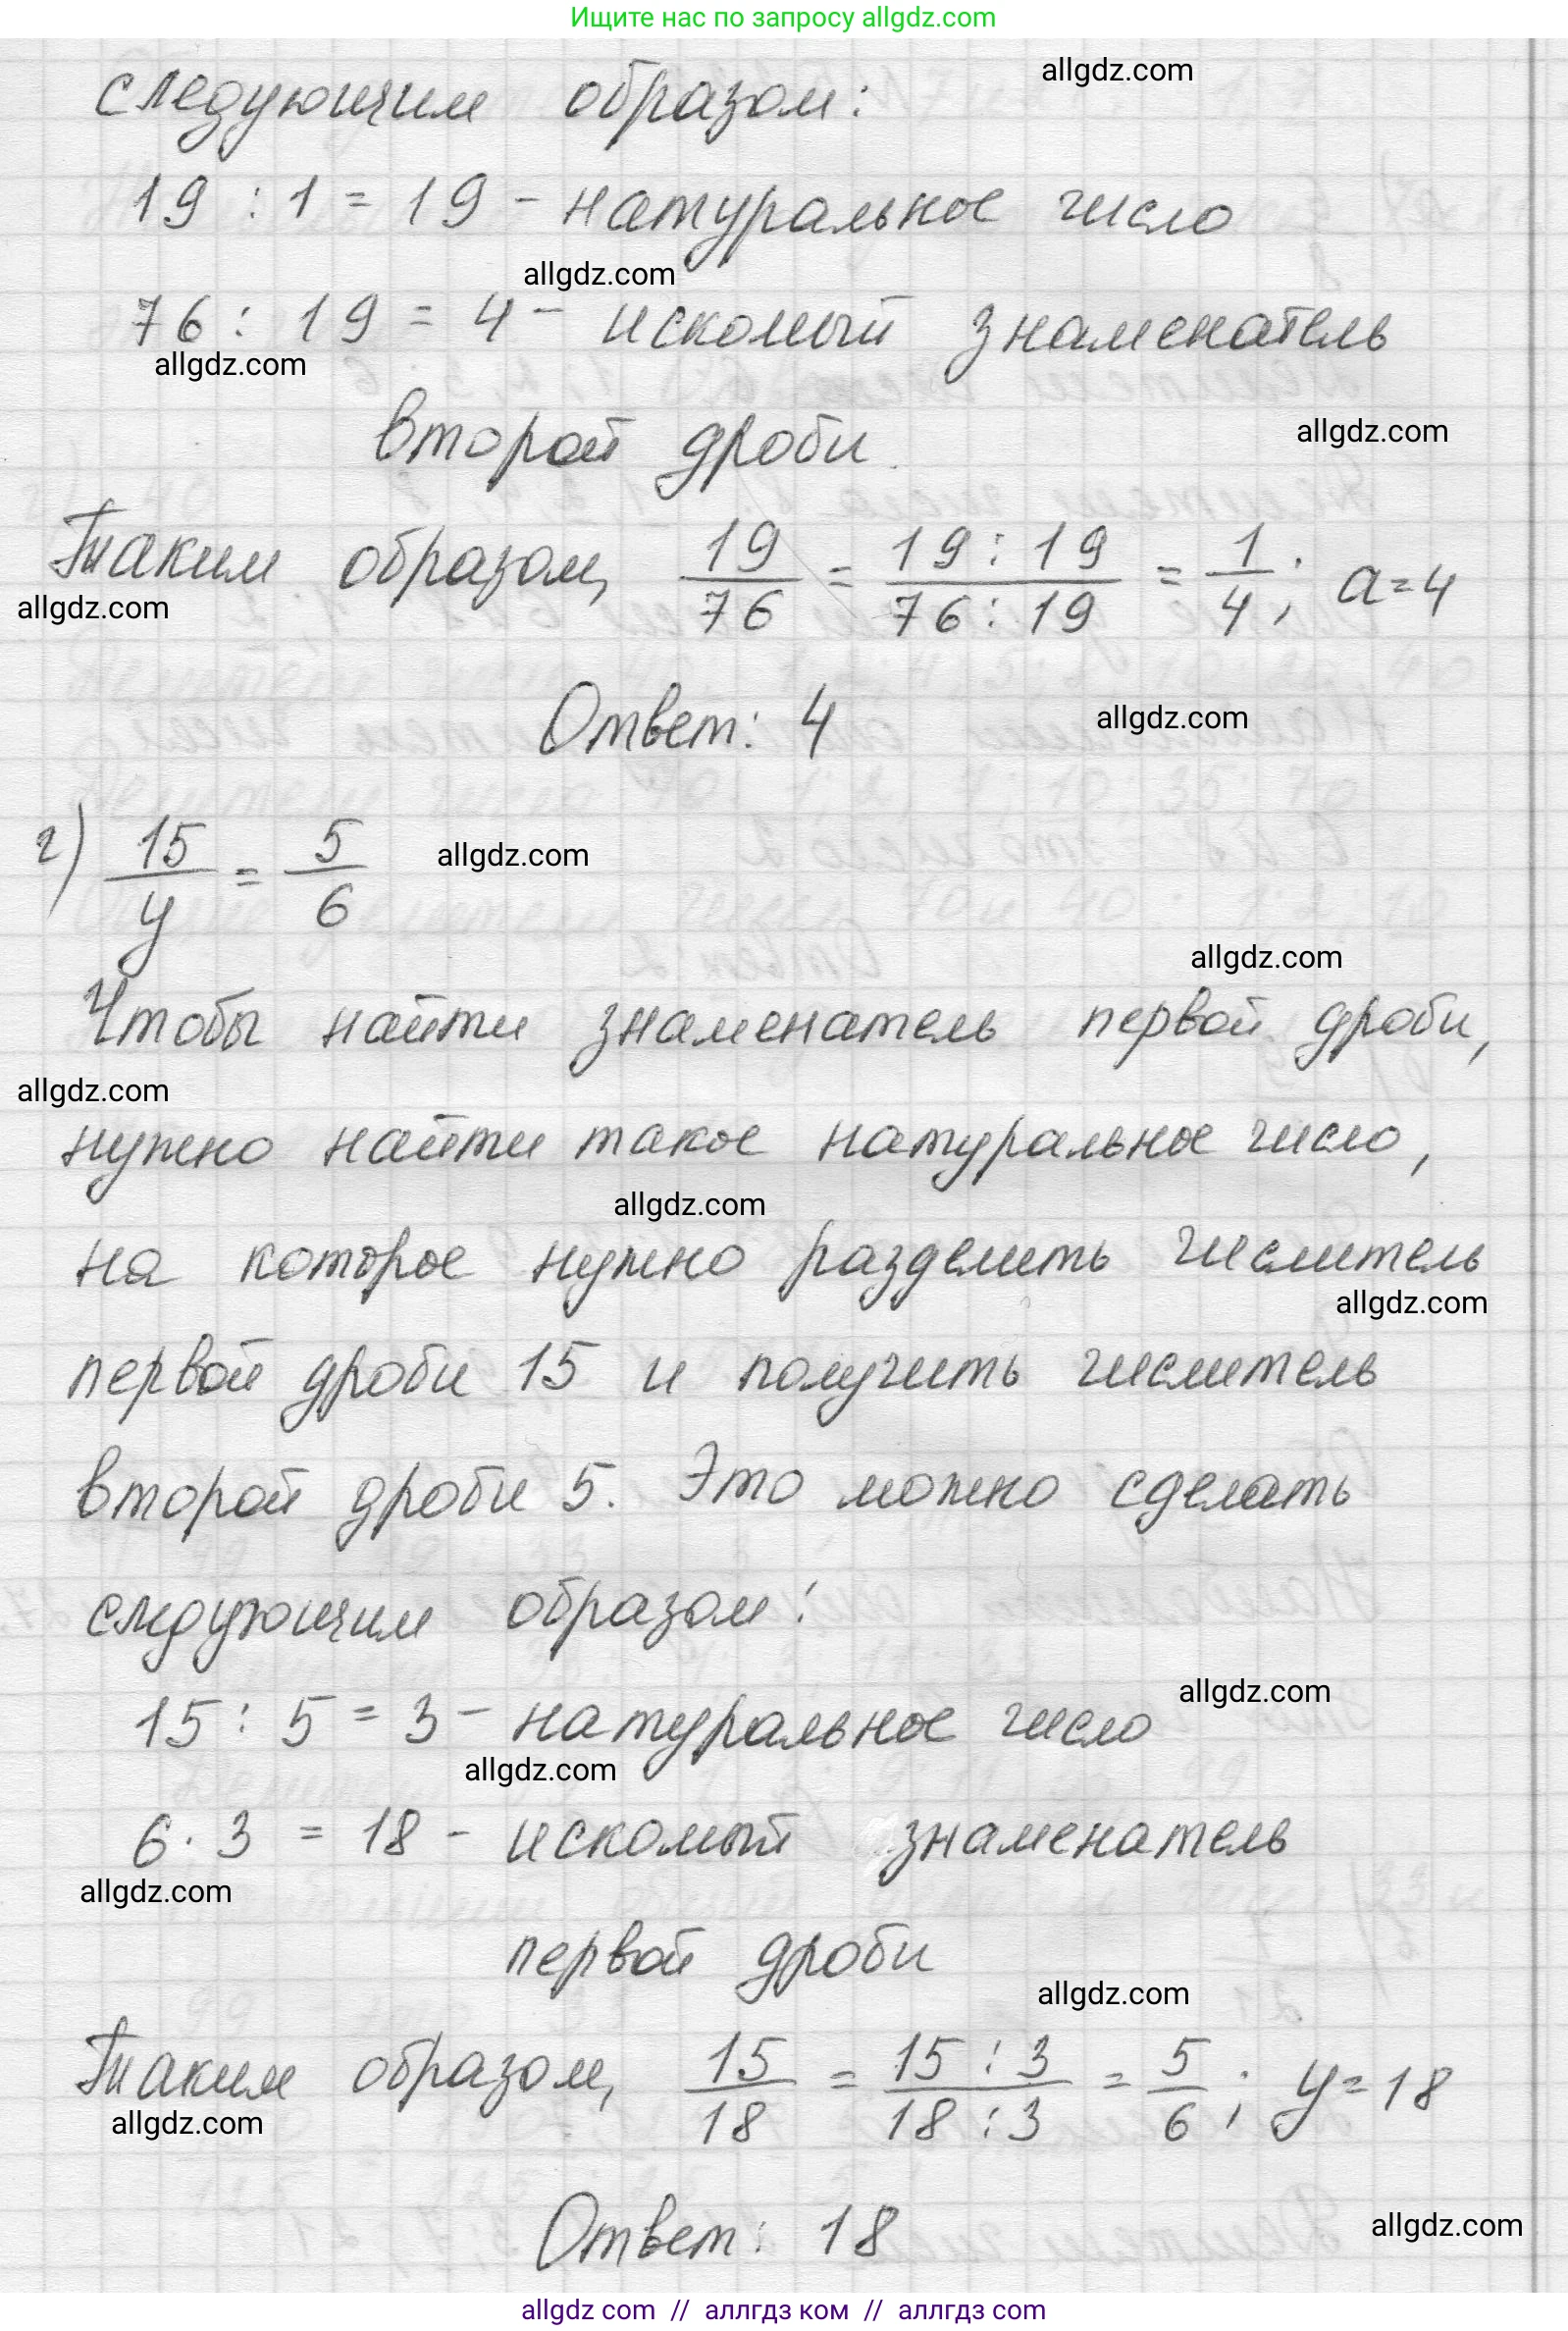 Ищите нас по запросу allgdz.com
allgdz.com
следующим образом:
19 : 1 = 19 - натуральное число
allgdz.com
76 : 19 = 4 - искомый знаменатель
allgdz.com
второй дроби
allgdz.com
Таким образом, 19/76 = 19 : 19/76 : 19 = 1/4; a = 4
allgdz.com
Ответ: 4
allgdz.com
г) 15/y = 5/6
allgdz.com
allgdz.com
Чтобы найти знаменатель первой дроби,
allgdz.com
нужно найти такое натуральное число,
allgdz.com
на которое нужно разделить числитель
allgdz.com
первой дроби 15 и получить числитель
второй дроби 5. Это можно сделать
следующим образом:
allgdz.com
15 : 5 = 3 - натуральное число
allgdz.com
6 · 3 = 18 - искомый знаменатель
allgdz.com
первой дроби
allgdz.com
Таким образом, 15/18 = 15 : 3/18 : 3 = 5/6; y = 18
allgdz.com
Ответ: 18
allgdz.com
allgdz com // аллгдз ком // аллгдз com